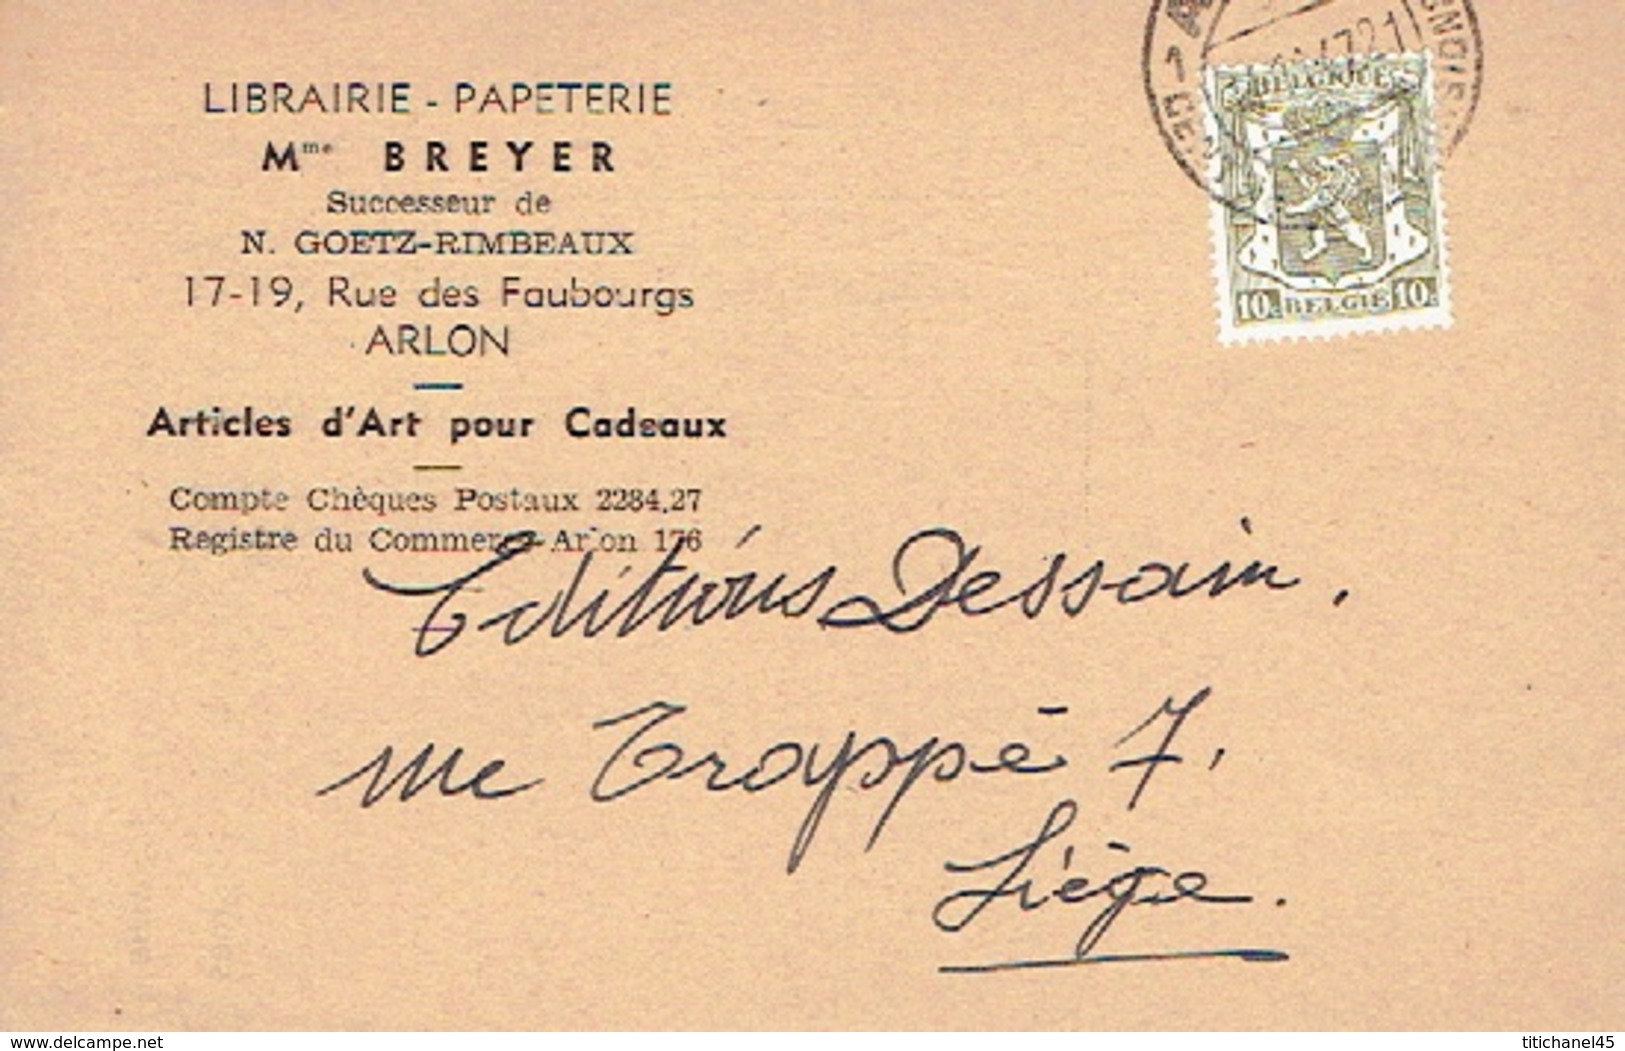 LIBRAIRIE - PAPETERIE
Mme BREYER
Successeur de
N. GOETZ-RIMBEAUX
17-19, Rue des Faubourgs
ARLON
Articles d'Art pour Cadeaux
Compte Chèques Postaux 2284.27
Registre du Commerce Arlon 176
BELGIQUE
10c BELGIE 10c
Editions Dessain.
rue Trappé 7.
Liège.
delcampe.net
titichanel45